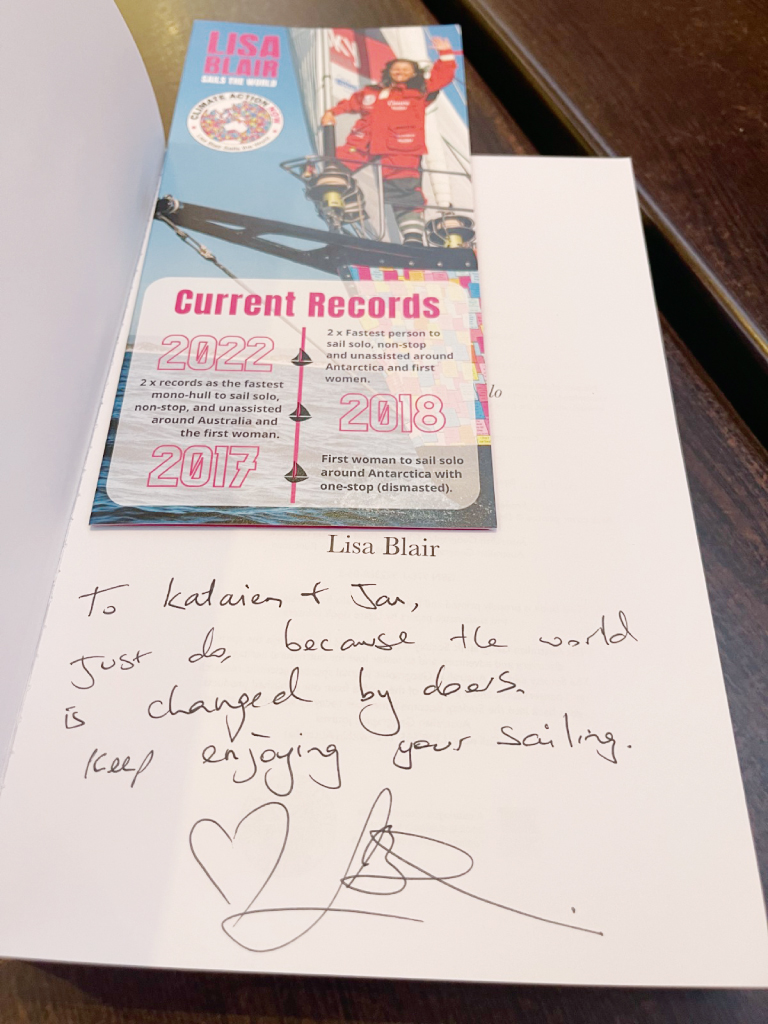 LISA
BLAIR
SAILS THE WORLD
CLIMATE ACTION NOW
Current Records
2022
2 x Fastest person to
sail solo, non-stop
and unassisted around
Antarctica and first
women.
2 x records as the fastest
mono-hull to sail solo,
non-stop, and unassisted
around Australia and
the first woman.
2018
2017
First woman to sail solo
around Antarctica with
one-stop (dismasted).
lo
Lisa Blair
To Kataien + Jan,
Just do, because the world
is changed by doers.
Keep enjoying your sailing.